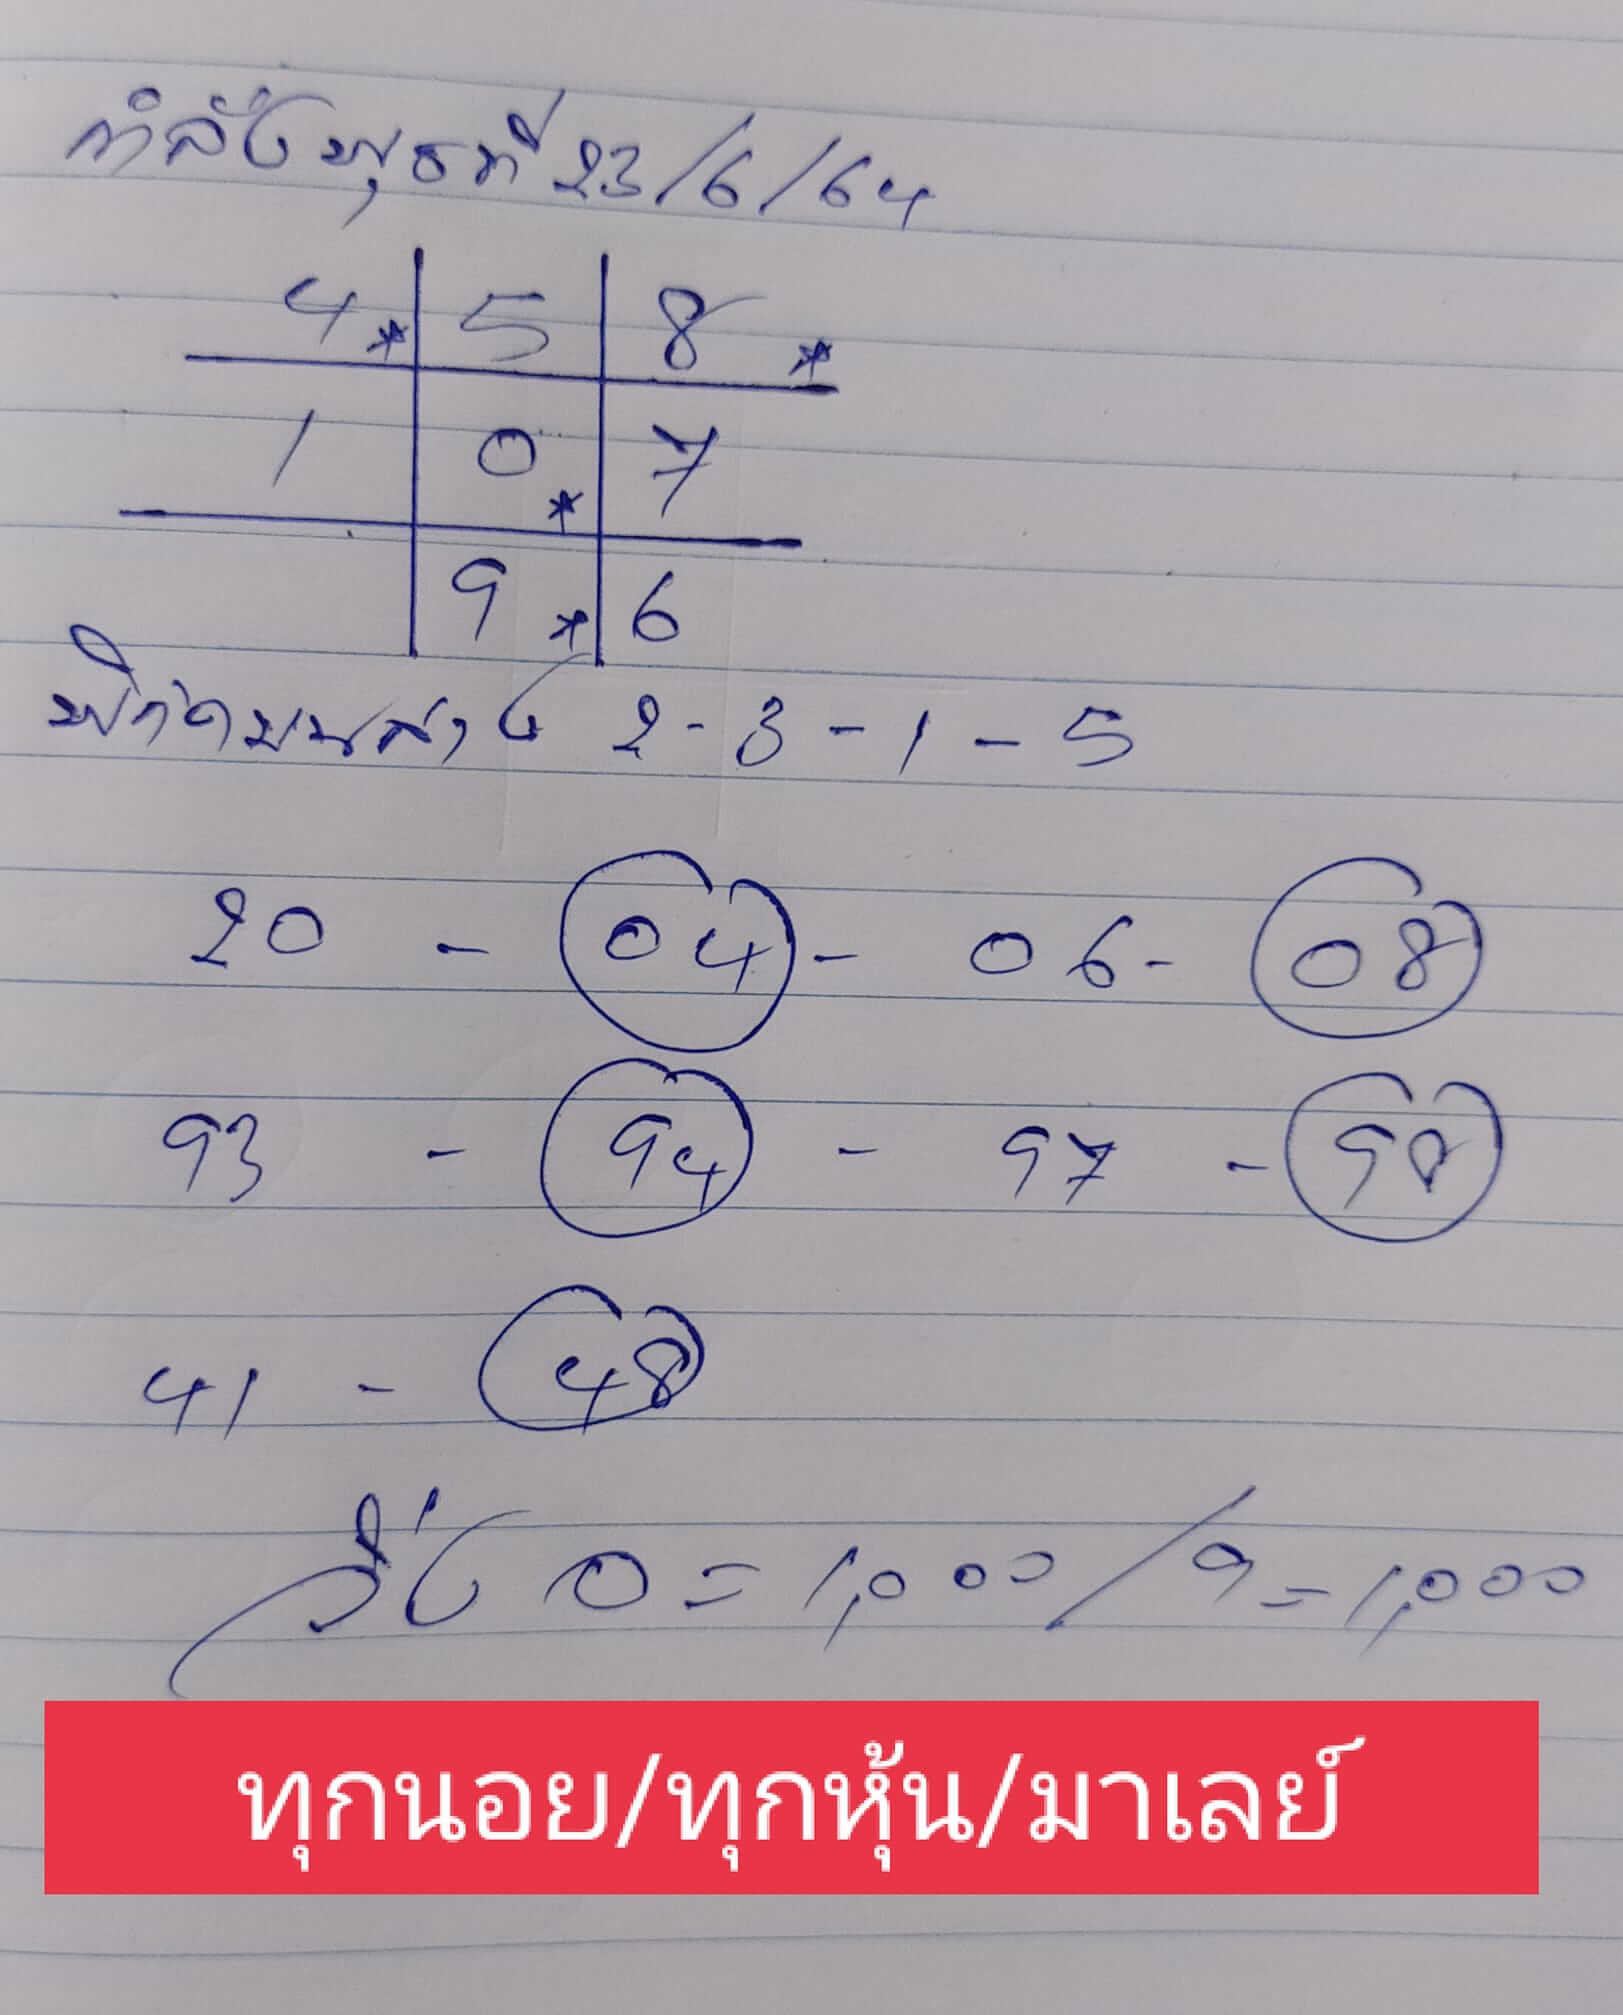 กำลังพุธที่ 23/6/64
4* 5 8*
1 0* 7
9* 6
พิกัดบนล่าง 2-3-1-5
20 - 04 - 06 - 08
93 - 94 - 97 - 98
41 - 48
วิ่ง 0 = 1,000/9 = 1,000
ทุกนอย/ทุกหุ้น/มาเลย์